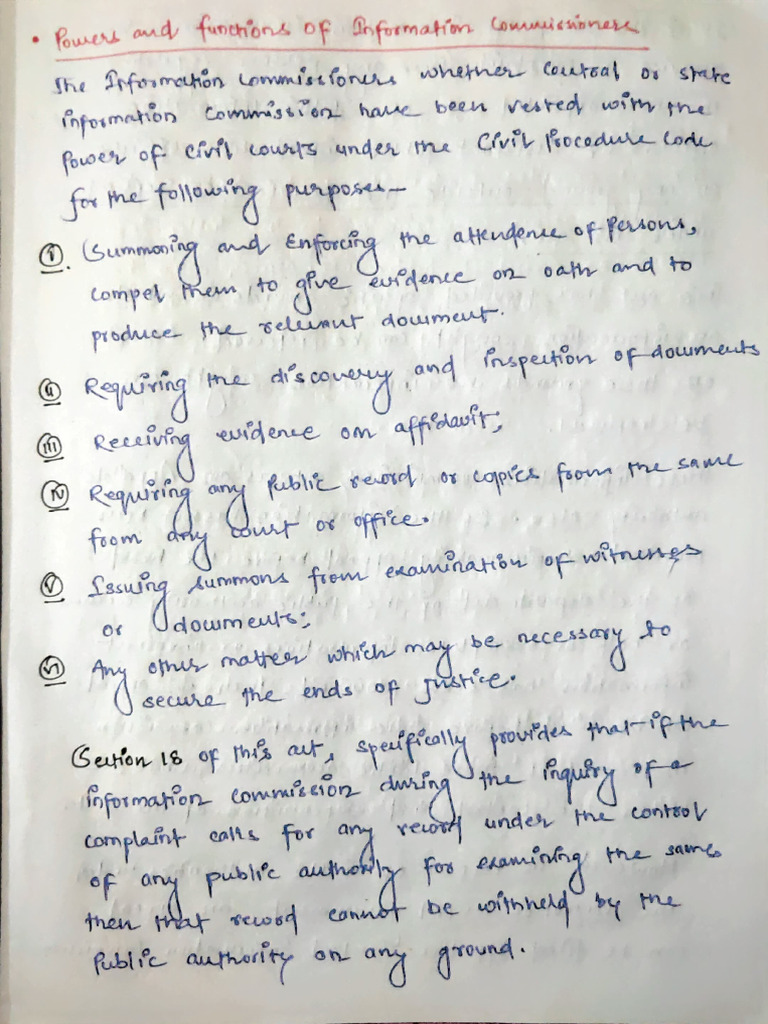 • Powers and functions of Information Commissioners
The Information Commissioners whether Central or state
information Commission have been vested with the
Power of civil courts under the Civil Procedure Code
for the following purposes—
(i). Summoning and Enforcing the attendence of Persons,
compel them to give evidence on oath and to
produce the relevant document.
(ii) Requiring the discovery and inspection of documents
(iii) Receiving evidence on affidavit;
(iv) Requiring any Public record or copies from the same
from any court or office.
(v) Issuing summons from examination of witnesses
or documents;
(vi) Any other matter which may be necessary to
secure the ends of justice.
Section 18 of this act, specifically provides that if the
information commission during the inquiry of a
complaint calls for any record under the control
of any public authority for examining the same.
then that record cannot be withheld by the
Public authority on any ground.